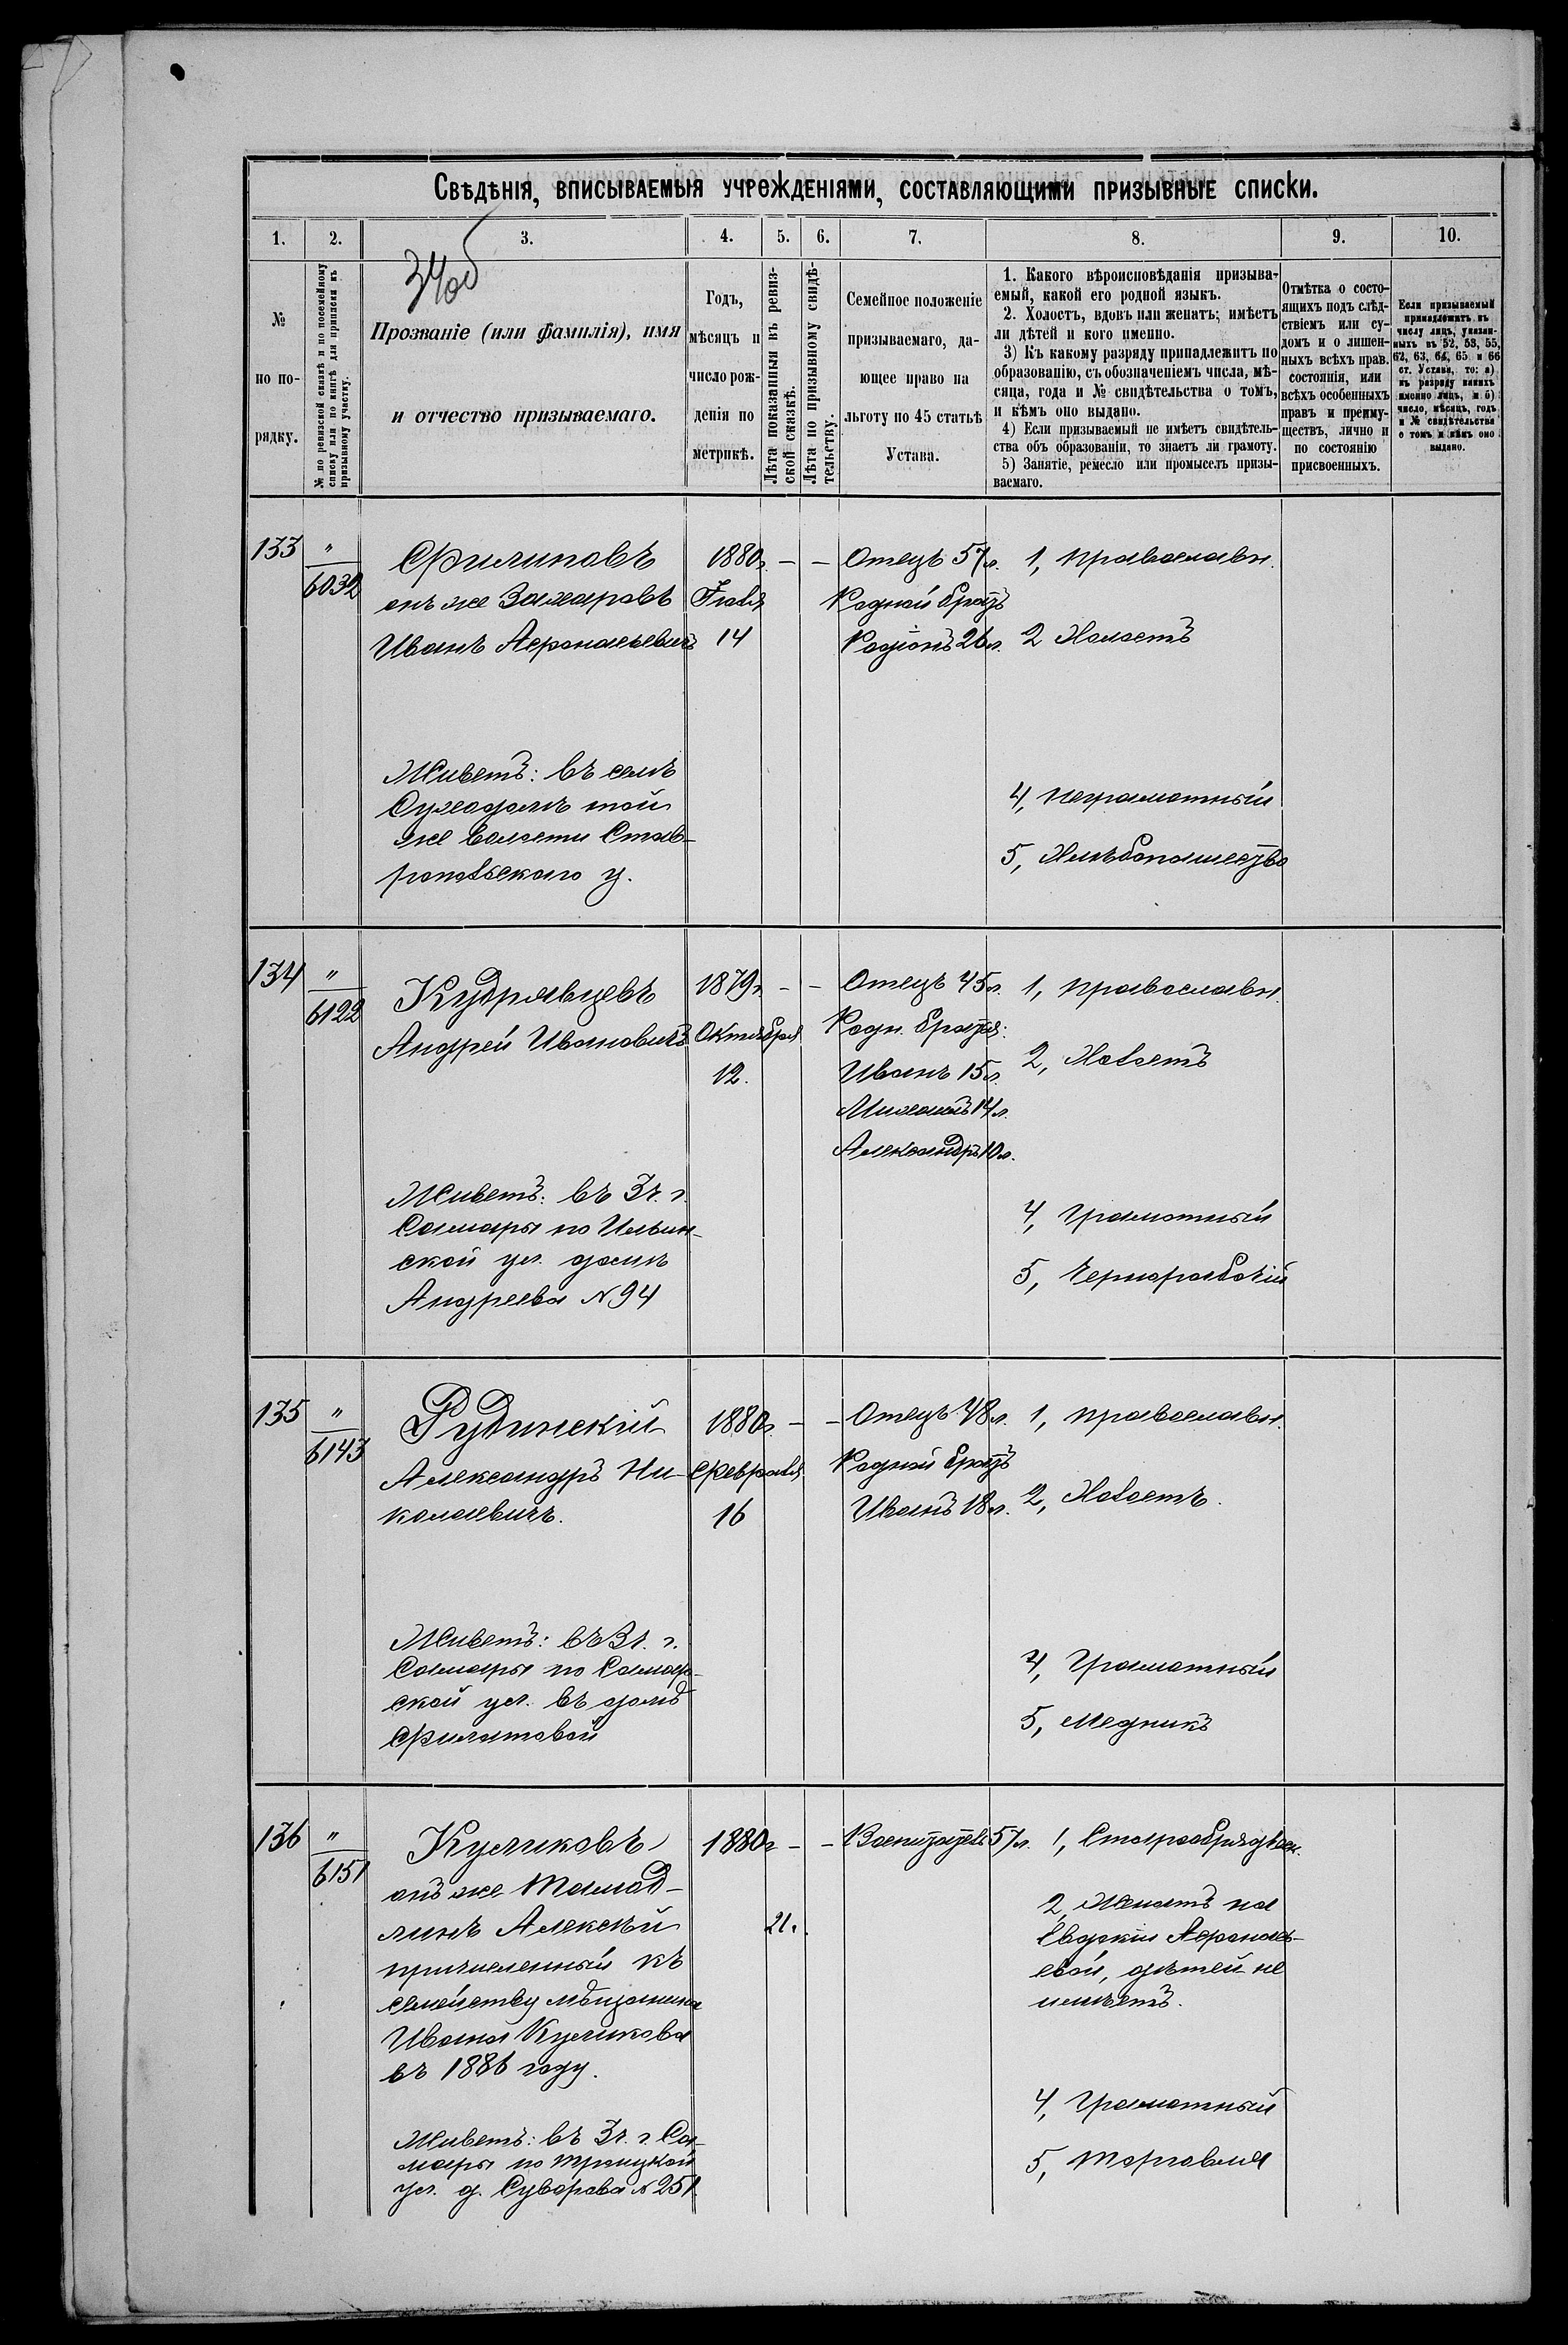 Свѣдѣнія, вписываемыя учрежденіями, составляющими призывные списки.
1. 2. 3. 4. 5. 6. 7. 8. 9. 10.
34об
№
по по-
рядку.
№ по ревизской сказкѣ и по посемейному
списку или по книгѣ для приписки къ
призывному участку.
Прозваніе (или фамилія), имя
и отчество призываемаго.
Годъ,
мѣсяцъ и
число рож-
денія по
метрикѣ.
Лѣта показанныя въ ревиз-
ской сказкѣ.
Лѣта по призывному свидѣ-
тельству.
Семейное положеніе
призываемаго, да-
ющее право на
льготу по 45 статьѣ
Устава.
1. Какого вѣроисповѣданія призыва-
емый, какой его родной языкъ.
2. Холостъ, вдовъ или женатъ; имѣетъ
ли дѣтей и кого именно.
3) Къ какому разряду принадлежитъ по
образованію, съ обозначеніемъ числа, мѣ-
сяца, года и № свидѣтельства о томъ,
и кѣмъ оно выдано.
4) Если призываемый не имѣетъ свидѣтель-
ства объ образованіи, то знаетъ ли грамоту.
5) Занятіе, ремесло или промыселъ призы-
ваемаго.
Отмѣтка о состо-
ящихъ подъ слѣд-
ствіемъ или су-
домъ и о лишен-
ныхъ всѣхъ прав.
состоянія, или
всѣхъ особенныхъ
правъ и преиму-
ществъ, лично и
по состоянію
присвоенныхъ.
Если призываемый
принадлежитъ къ
числу лицъ, указан-
ныхъ въ 52, 53, 55,
62, 63, 64, 65 и 66
ст. Устава, то: а)
къ разряду какихъ
именно лицъ, и б)
число, мѣсяцъ, годъ
и № свидѣтельства
о томъ и кѣмъ оно
выдано.
133
"
6032
Филиповъ
онъ же Захаровъ
Иванъ Афонасьевичъ
Живетъ: въ селѣ
Суходолѣ той
же волости Став-
ропольскаго у.
1880г.
Іюля
14
- -
Отецъ 57л.
Родной братъ
Родіонъ 26л.
1, православн.
2 Холостъ
4, неграмотный
5, Хлѣбопашество
134
"
6122
Кудрявцевъ
Андрей Ивановичъ
Живетъ: въ 3ч. г.
Самары по Ильин-
ской ул. домъ
Андреева №94
1879г.
Октября
12.
- -
Отецъ 45л.
Родн. братья:
Иванъ 15л.
Михаилъ 14л.
Александръ 10л.
1, православн.
2, Холостъ
4, Грамотный
5, Чернорабочій
135
"
6143
Рудинскій
Александръ Ни-
колаевичъ.
Живетъ: въ 3ч. г.
Самары по Самар-
ской ул. въ домѣ
Филатовой
1880г.
Февраля
16
- -
Отецъ 48л.
Родной братъ
Иванъ 18л.
1, православн.
2, Холостъ.
4, Грамотный
5, Медникъ
136
"
6151
Куликовъ
онъ же Мамад-
линъ Алексѣй
причисленный къ
семейству мѣщанина
Ивана Куликова
въ 1886 году.
Живетъ: въ 3ч. г. Са-
мары по Троицкой
ул. д. Суворова №251
1880г
- -
21.
Воспитатель 57л.
1, Старообрядческ.
2, Женатъ на
Евдокіи Афонась-
евой, дѣтей не
имѣетъ.
4, Грамотный
5, Торговля